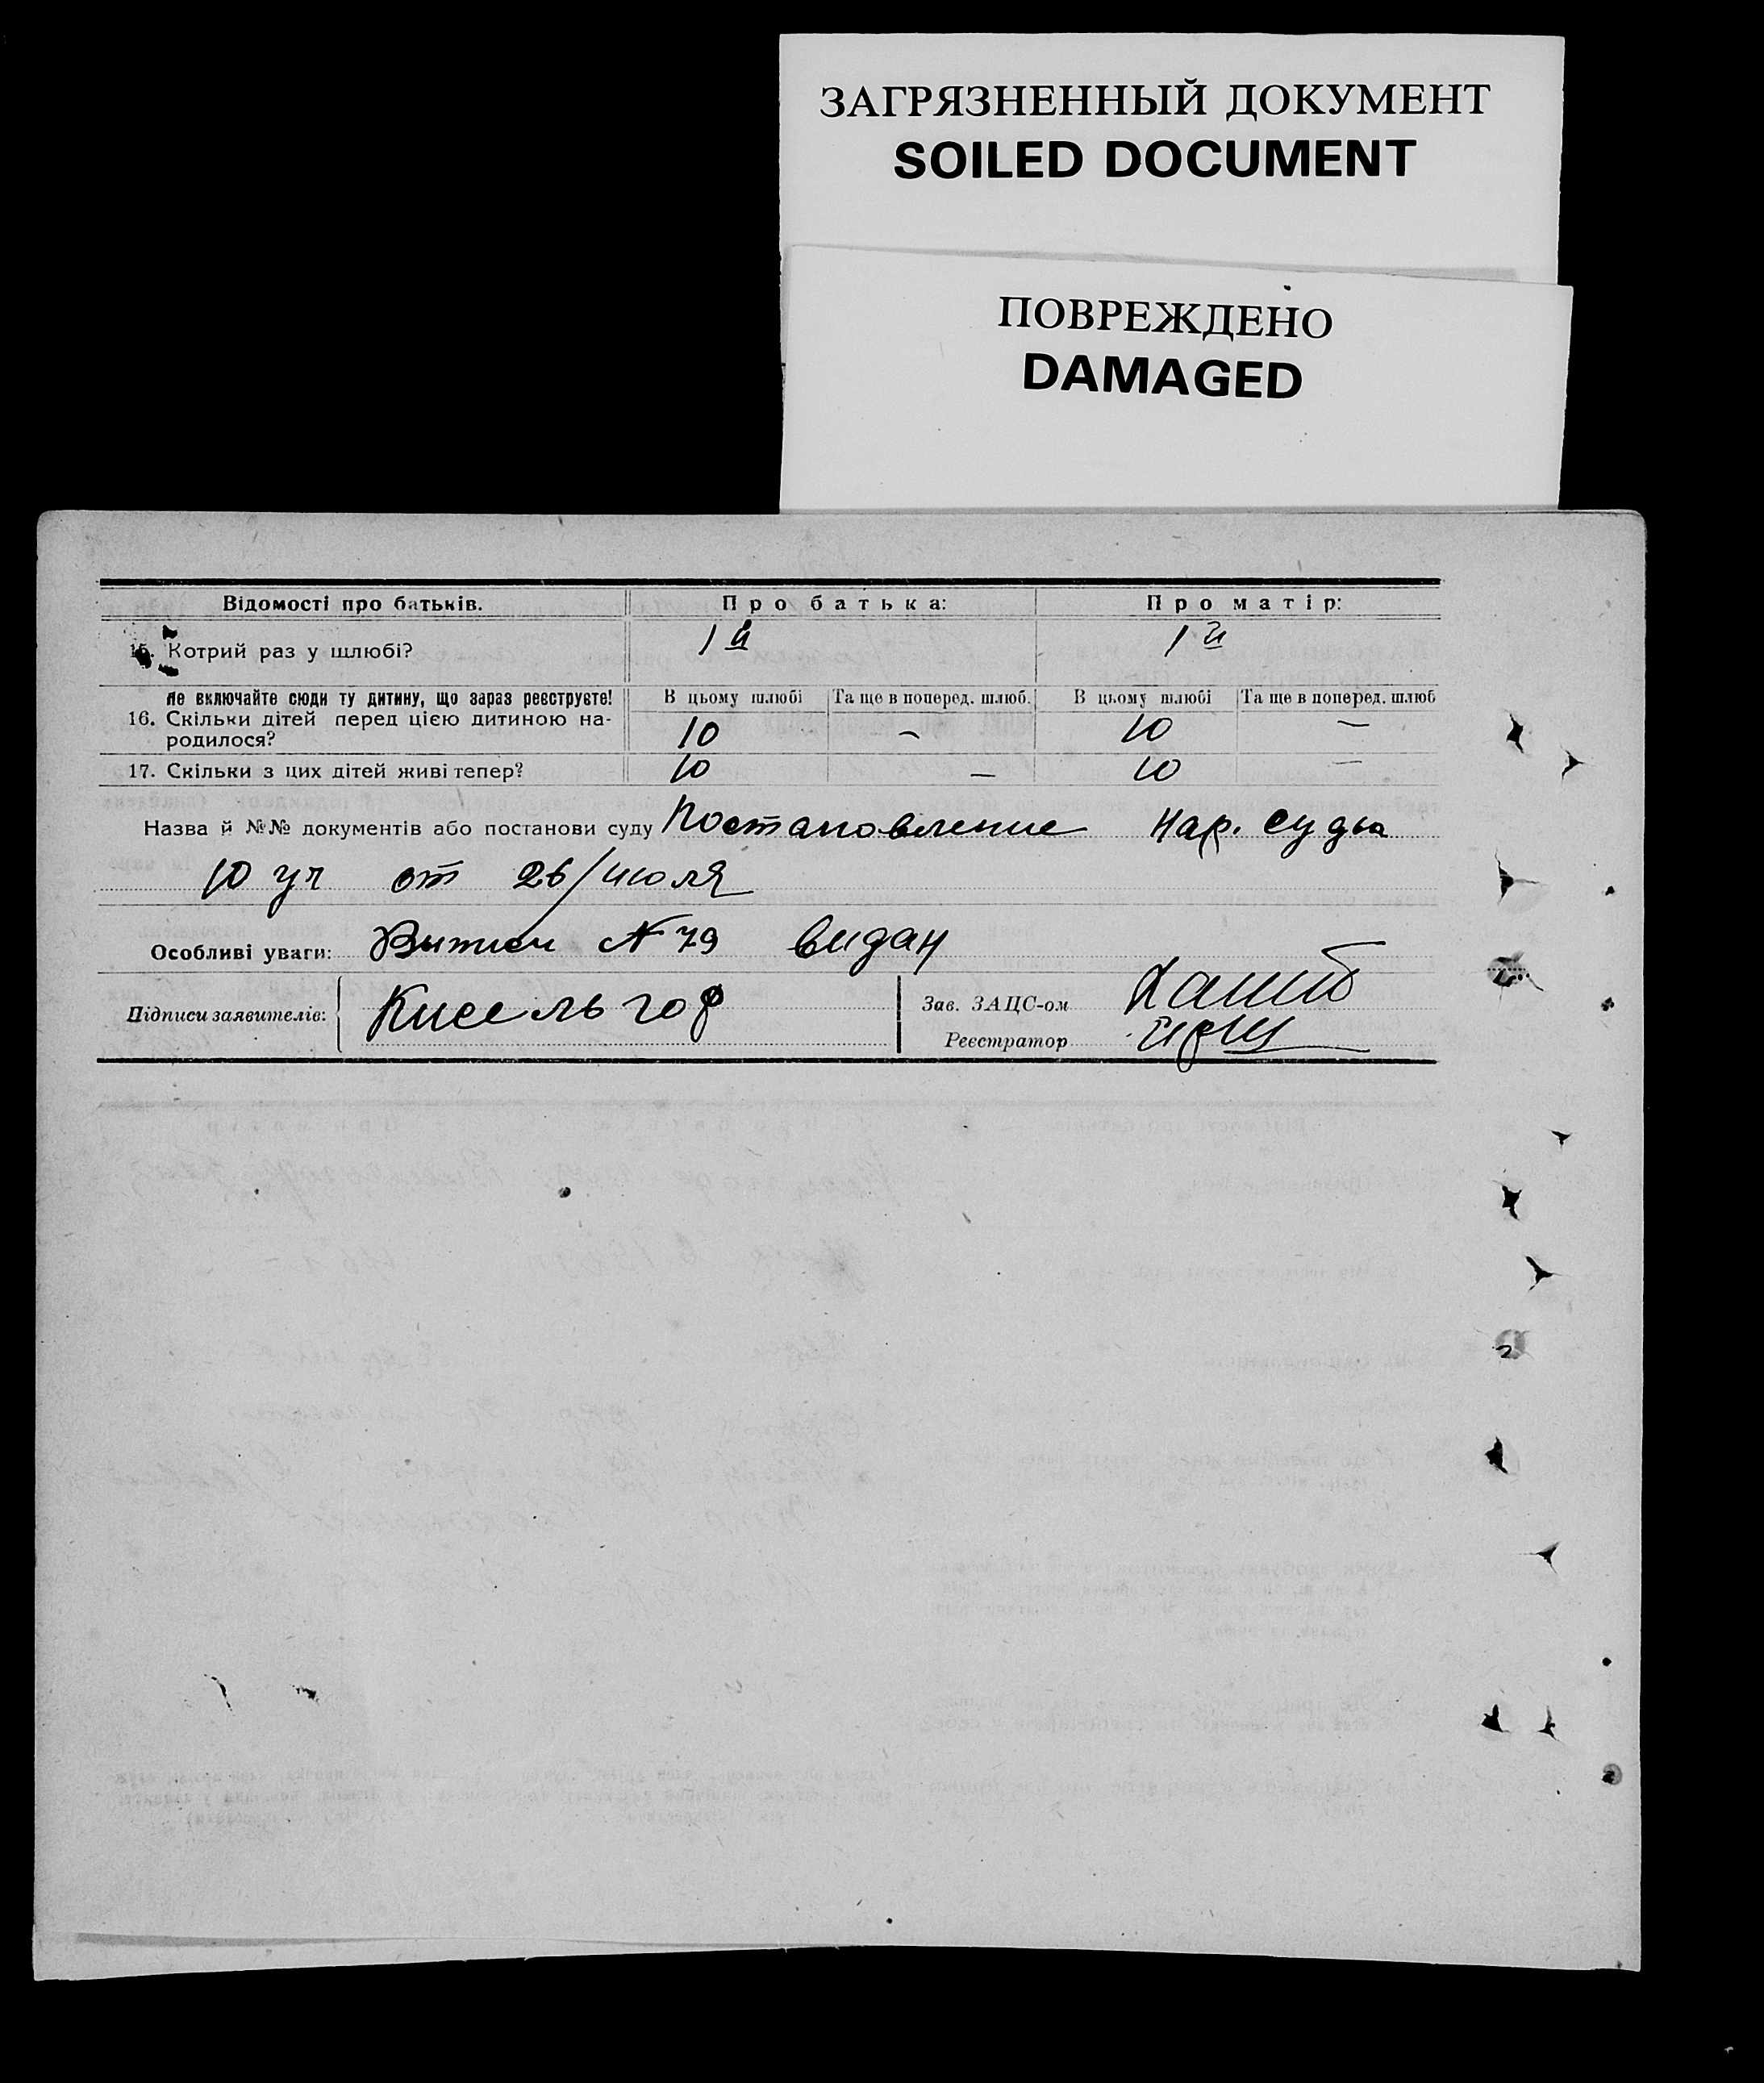 ЗАГРЯЗНЕННЫЙ ДОКУМЕНТ
SOILED DOCUMENT
ПОВРЕЖДЕНО
DAMAGED
Відомості про батьків. Про батька: Про матір:
15. Котрий раз у шлюбі? 1й 1й
Не включайте сюди ту дитину, що зараз реєструєте! В цьому шлюбі Та ще в поперед. шлюб. В цьому шлюбі Та ще в поперед. шлюб
16. Скільки дітей перед цією дитиною на-
родилося? 10 – 10 –
17. Скільки з цих дітей живі тепер? 10 – 10 –
Назва й №№ документів або постанови суду Постановление Нар. суда
10 уч от 26/июля
Особливі уваги: N 79 видан
Підписи заявителів: Кисельгоф Зав. ЗАЦС-ом
Реєстратор